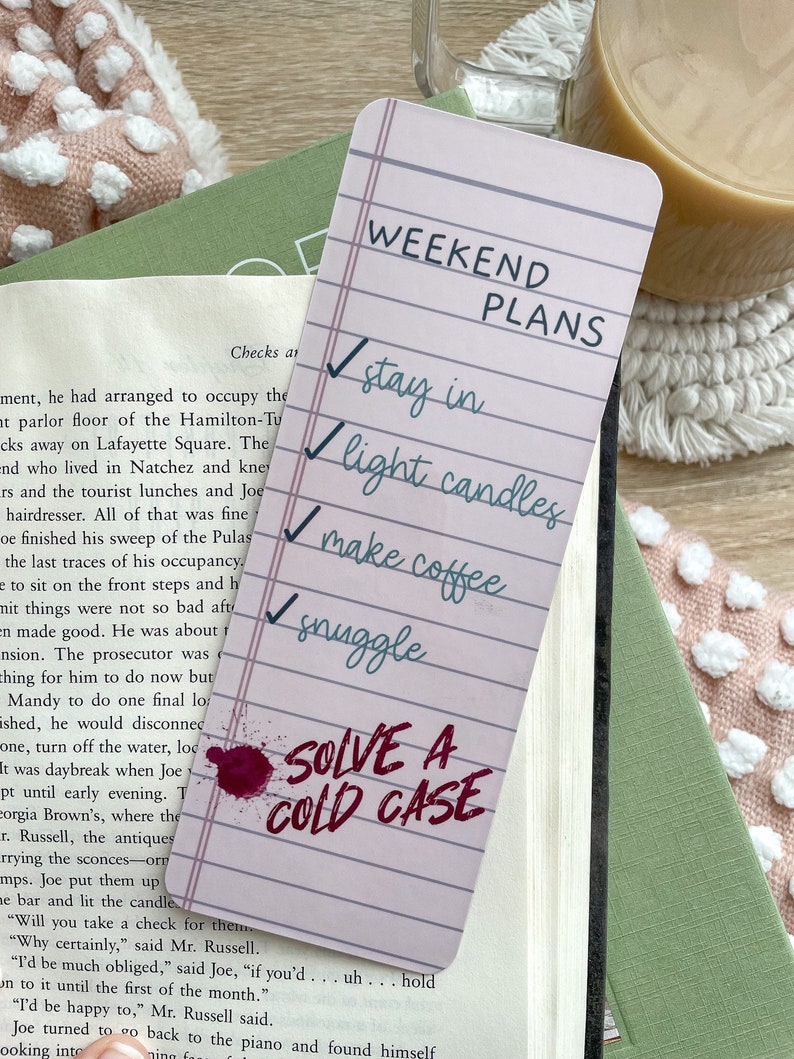 WEEKEND
PLANS
✓ stay in
✓ light candles
✓ make coffee
✓ snuggle
SOLVE A
COLD CASE
Checks
ment, he had arranged to occupy the
parlor floor of the Hamilton-Tu
cks away on Lafayette Square. The
end who lived in Natchez and knew
rs and the tourist lunches and Joe
hairdresser. All of that was fine
oe finished his sweep of the Pulas
the last traces of his occupancy.
e to sit on the front steps and h
mit things were not so bad aft
en made good. He was about
nsion. The prosecutor was
thing for him to do now but
Mandy to do one final loa
ished, he would disconnec
one, turn off the water, loc
It was daybreak when Joe
pt until early evening. T
eorgia Brown's, where the
r. Russell, the antiques
rrying the sconces—orn
mps. Joe put them up
e bar and lit the candles
"Will you take a check for them
"Why certainly," said Mr. Russell.
"I'd be much obliged," said Joe, "if you'd . . . uh . . . hold
on to it until the first of the month."
"I'd be happy to," Mr. Russell said.
Joe turned to go back to the piano and found himself
ooking into